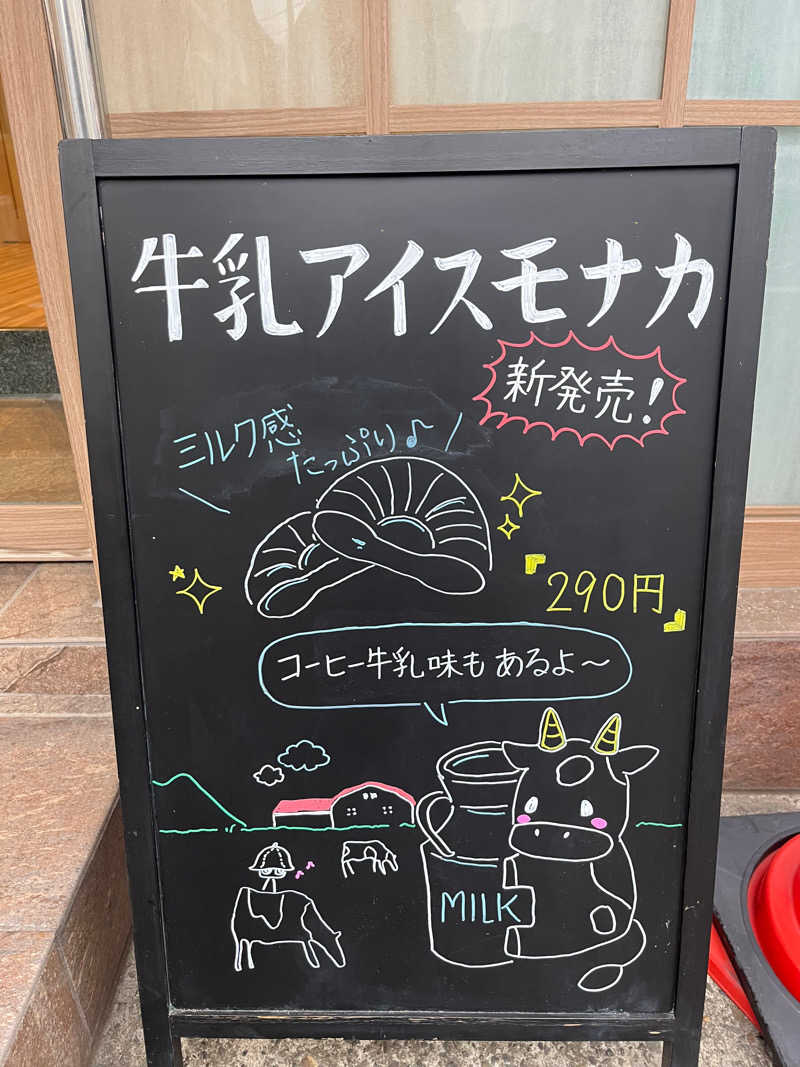 牛乳アイスモナカ
新発売!
ミルク感
たっぷり♪
290円
コーヒー牛乳味も あるよ〜
MILK